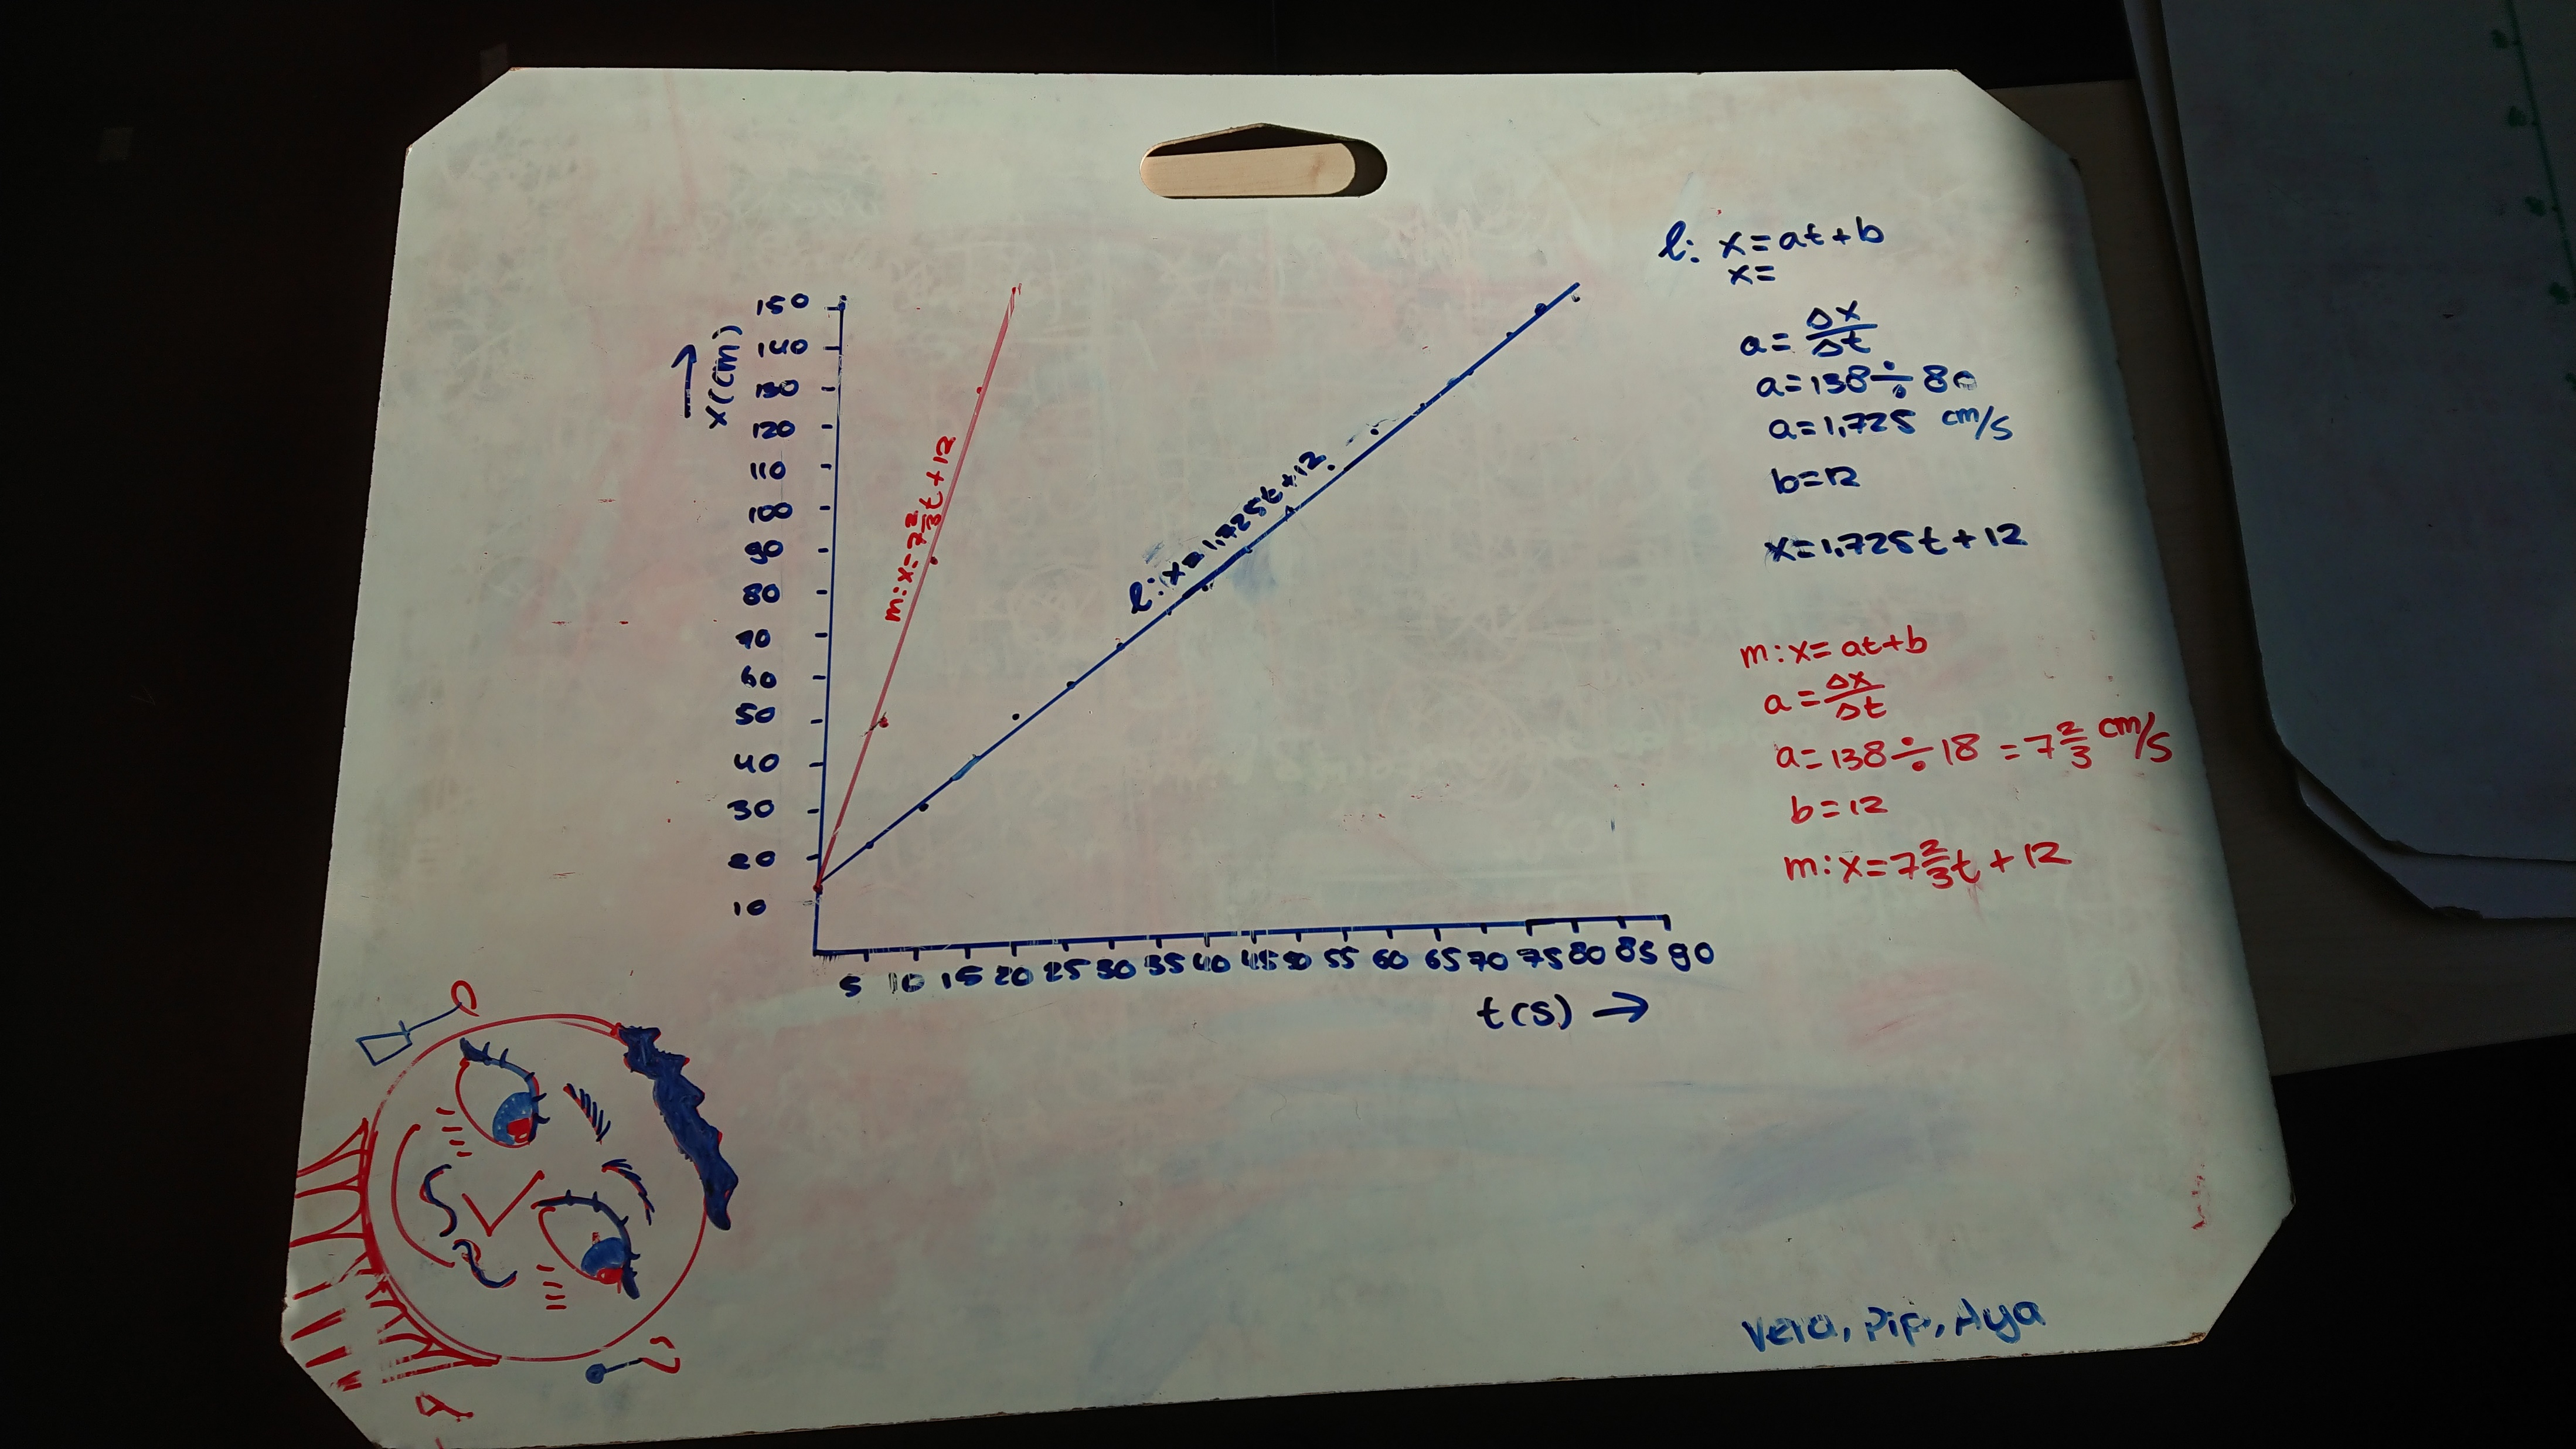 150
140
130
120
110
100
90
80
70
60
50
40
30
20
10
x(cm)
5 10 15 20 25 30 35 40 45 50 55 60 65 70 75 80 85 90
t(s) →
m: x = 7 2/3 t + 12
l: x = 1,725t + 12
l: x = at + b
x =
a = Δx/Δt
a = 138 ÷ 80
a = 1,725 cm/s
b = 12
x = 1,725t + 12
m: x = at + b
a = Δx/Δt
a = 138 ÷ 18 = 7 2/3 cm/s
b = 12
m: x = 7 2/3 t + 12
Vera, Pip, Aya